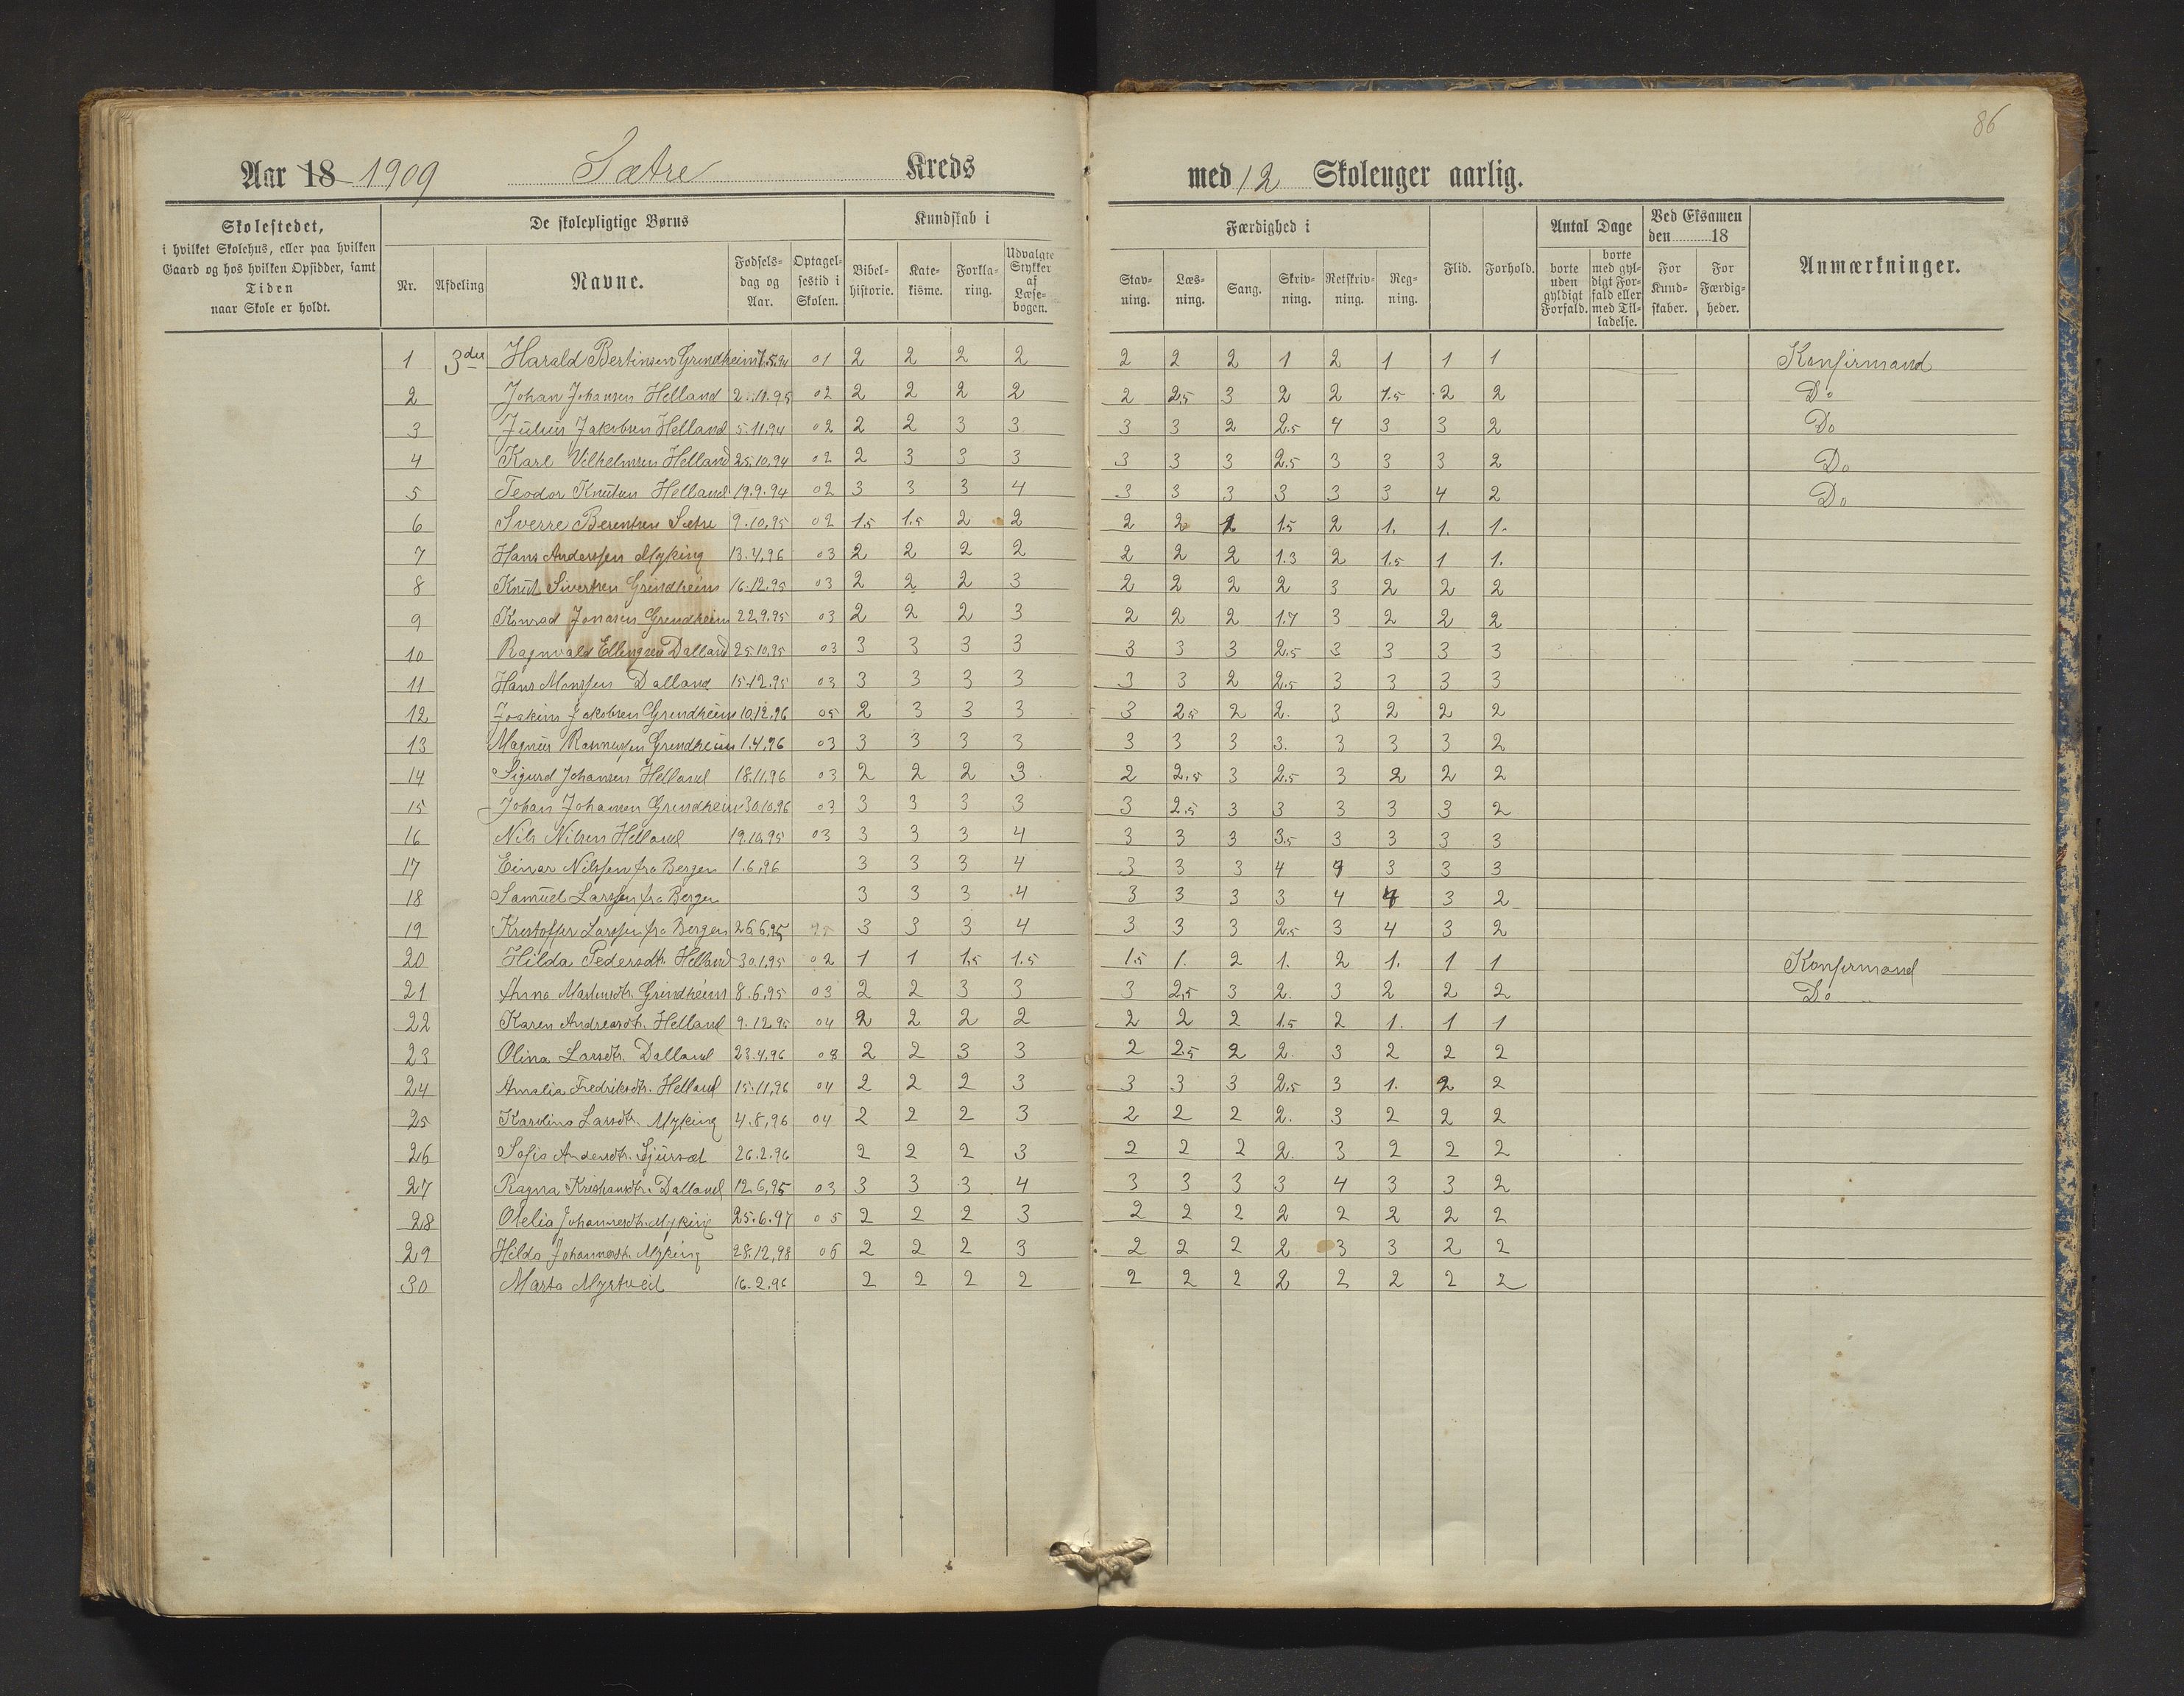 86
Aar 18 1909 Sætre Kreds med 12 Skoleuger aarlig.
Skolestedet,
i hvilket Skolehus, eller paa hvilken
Gaard og hos hvilken Opsidder, samt
Tiden
naar Skole er holdt.
De skolepligtige Børns
Nr. Afdeling Navne. Fødsels-dag og Aar. Optagel-sestid i Skolen.
Kundskab i
Bibel-historie. Kate-kisme. Forkla-ring. Udvalgte Stykker af Læse-bogen.
Færdighed i
Stav-ning. Læs-ning. Sang. Skriv-ning. Retskriv-ning. Reg-ning.
Flid. Forhold.
Antal Dage
borte uden gyldigt Forfald. borte med gyl-digt For-fald eller med Til-ladelse.
Ved Eksamen den 18
For Kund-skaber. For Færdig-heder.
Anmærkninger.
1 3die Harald Bertinsen Grindheim 01 2 2 2 2 2 2 2 1 2 1 1 1 Konfirmand
2 Johan Johansen Helland 02 2 2 2 2 2 2.5 3 2 2 1.5 2 2 Do
3 Julius Jakobsen Helland 5.11.94 02 2 2 3 3 3 3 2 2.5 4 3 3 2 Do
4 Karl Vilhelmsen Helland 25.10.94 02 2 3 3 3 3 3 3 2.5 3 3 3 2 Do
5 Teodor Knutsen Helland 19.9.94 02 3 3 3 4 3 3 3 3 3 3 4 2 Do
6 Sverre Berentsen Sætre 9.10.95 02 1.5 1.5 2 2 2 2 1 1.5 2 1. 1. 1.
7 Hans Anderssen Myking 13.4.96 03 2 2 2 2 2 2 2 1.3 2 1.5 1 1.
8 Knut Sivertsen Grindheim 16.12.95 03 2 2 2 3 2 2 2 2 3 2 2 2
9 Konrad Jonasen Grindheim 22.9.95 03 2 2 2 3 2 2 2 1.7 3 2 2 2
10 Ragnvald Ellingsen Dalland 25.10.95 03 3 3 3 3 3 3 3 2.5 3 3 3 3
11 Hans Monssen Dalland 15.12.95 03 3 3 3 3 3 3 2 2.5 3 3 3 3
12 Joakim Jakobsen Grindheim 10.12.96 05 2 3 3 3 3 2.5 2 2. 3 2 2 2
13 Magnus Rasmussen Grindheim 1.4.96 03 3 3 3 3 3 3 3 3. 3 3 3 2
14 Sigurd Johansen Helland 18.11.96 03 2 2 2 3 2 2.5 3 2.5 3 2 2 2
15 Johan Johansen Grindheim 30.10.96 03 3 3 3 3 3 2.5 3 3 3 3 3 2
16 Nils Nilsen Helland 19.10.95 03 3 3 3 4 3 3 3 3.5 3 3 3 3
17 Einar Nilssen fra Bergen 1.6.96 3 3 3 4 3 3 3 4 4 3 3 3
18 Samuel Larssen fra Bergen 3 3 3 4 3 3 3 3 4 4 3 2
19 Kristoffer Larssen fra Bergen 26.6.95 3 3 3 4 3 3 3 2.5 3 4 3 2
20 Hilda Pedersdtr. Helland 30.1.95 02 1 1 1.5 1.5 1.5 1. 2 1. 2 1. 1 1 Konfirmand
21 Anna Martinsdtr. Grindheim 8.6.95 03 2 2 3 3 3 2.5 3 2. 3 2 2 2 Do
22 Karen Andreasdtr. Helland 9.12.95 04 2 2 2 2 2 2 2 1.5 2 1. 1 1
23 Olina Larsdtr. Dalland 23.4.96 03 2 2 3 3 2 2.5 2 2. 3 2 2 2
24 Amalia Fredriksdtr. Helland 15.11.96 04 2 2 2 3 3 3 3 2.5 3 1. 2 2
25 Karolina Larsdtr. Myking 4.8.96 04 2 2 2 3 2 2 2 2. 3 2 2 2
26 Sofia Andersdtr. 26.2.96 2 2 2 3 2 2 2 2. 3 2 2 2
27 Ragna Kristiansdtr. Dalland 12.6.95 03 3 3 3 4 3 3 3 3 4 3 3 2
28 Otelia Johannesdtr. Myking 25.6.97 05 2 2 2 3 2 2 2 2 2 2 2 2
29 Hilda Johannesdtr. Myking 28.12.98 06 2 2 2 3 2 2 2 2 3 3 2 2
30 Marta Myrtveit 16.2.96 2 2 2 2 2 2 2 2 2 2 2 2